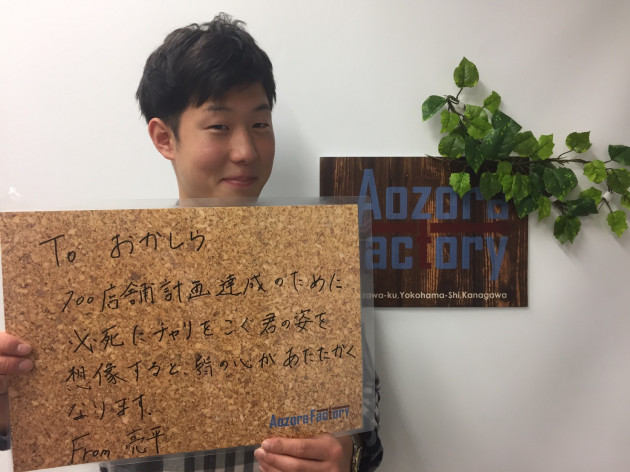 To おかしら
700店舗計画達成のために
必死にチャリをこぐ君の姿を
想像すると、皆の心があたたかく
なります。
From 亮平
Aozora Factory
Aozora
Factory
awa-ku.Yokohama-Shi.Kanagawa